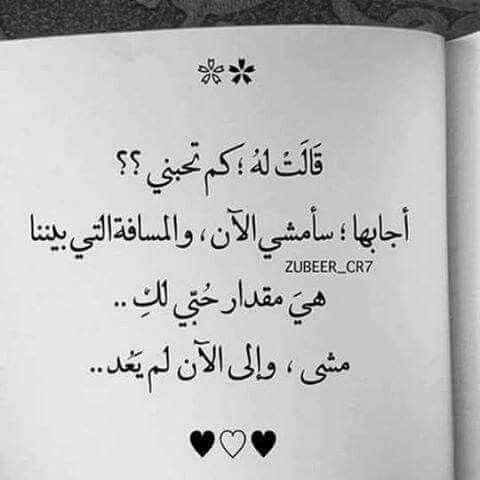 قَالَتْ لهُ ؛ كم تحبني ؟؟
أجابها ؛ سأمشي الآن ، والمسافة التي بيننا
ZUBEER_CR7
هيَ مقدار حُبّي لكِ ..
مشى ، وإلى الآن لم يَعُد ..